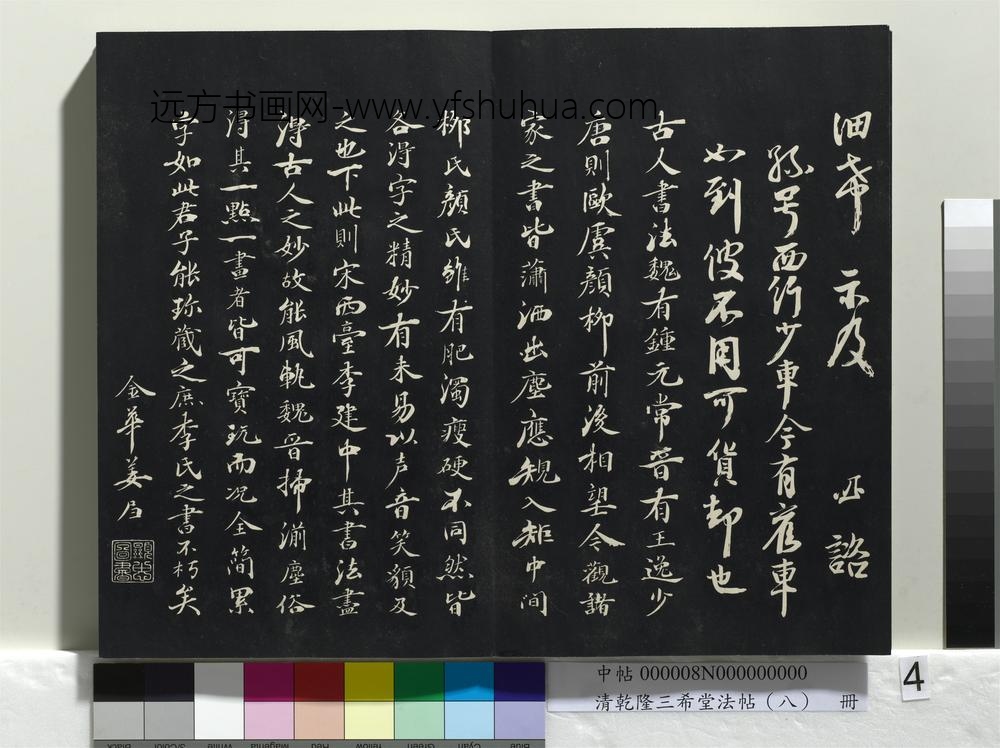 示及 諮
號西行少車今有舊車
如到彼不用可貨却也
古人書法魏有鍾元常晉有王逸少
唐則歐虞顏柳前後相望今觀諸
家之書皆瀟洒出塵應規入矩中間
柳氏顏氏雖有肥濁瘦硬不同然皆
各得字之精妙有未易以声音笑貌及
之也下此則宋西臺李建中其書法盡
得古人之妙故能風軌魏晉掃湔塵俗
得其一點一畫者皆可寶玩而况全簡累
字如此君子能珍藏之庶李氏之書不朽矣
金華姜
远方书画网-www.yfshuhua.com
中帖 000008N000000000
清乾隆三希堂法帖（八） 冊
4
Black 3/Color White Magenta Red Yellow Green Cyan Blue